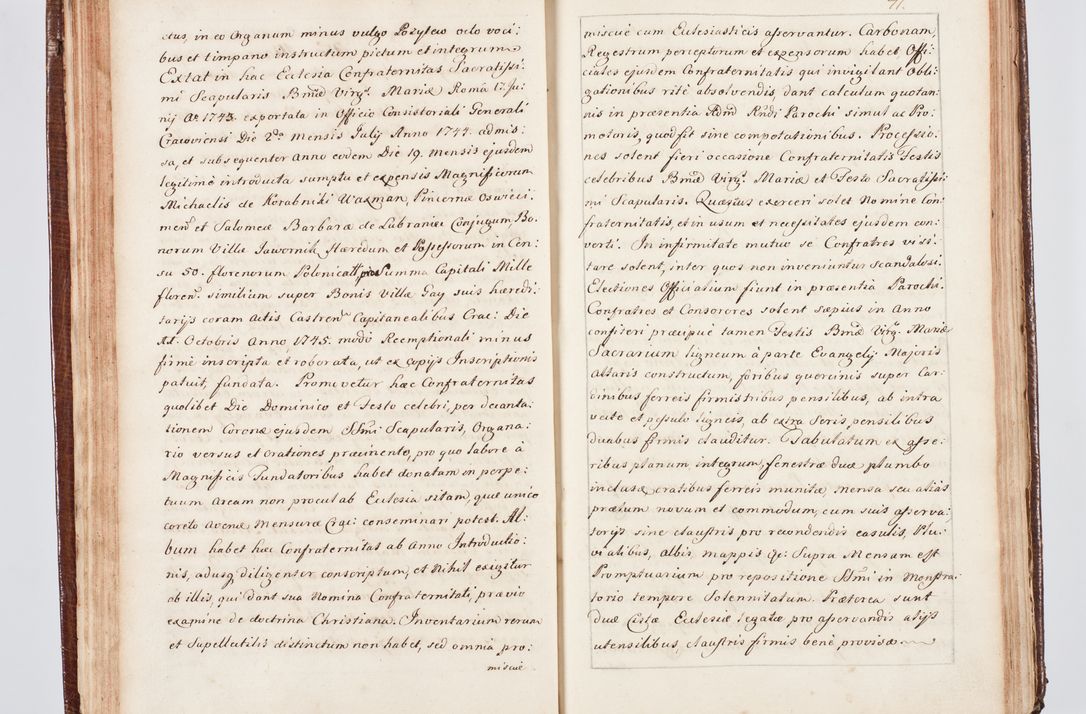 ctus, in eo Organum minus vulgo Pozytew octo voci:
bus et timpano instructum pictum et integrum.
Extat in hac Ecclesia Confraternitas Sacratissi:
mi Scapularis Bmæ Virgs. Mariæ Roma 1ma Ju:
nij Ao 1743. exportata in Officio Consistoriali Generali
Cracoviensi Die 2da mensis Julij Anno 1744. admis:
sa, et subsequenter anno eodem Die 19. mensis ejusdem
legitimè introducta sumptu et expensis Magnificorum
Michaelis de Korabniki Waxman, Pincernæ Oswieci:
men. et Salomeæ Barbaræ de Lubranice Conjugum, Bo:
norum Villæ Jawornik Hæredum et Possessorum in Cen:
su 50. florenorum Polonicall pro Summa Capitali Mille
floren. similium super Bonis Villæ Gay suis hæredi:
tarijs coram Actis Castren. Capitanealibus Crac: Die
Octobris Anno 1745. modo Reemptionali minus
firmè inscripta et roborata, ut ex copijs Inscriptionis
patuit, fundata. Promovetur hæc Confraternitas
quolibet Die Dominico et Festo celebri, per decanta:
tionem Coronæ ejusdem SSmi Scapularis, Organa:
rio versus et Orationes præcinente, pro quo labore à
Magnificis Fundatoribus habet donatam in perpe:
tuum Aream non procul ab Ecclesia sitam, quæ unico
coreto avenæ mensuræ conseminari potest. Al:
bum habet hæc Confraternitas ab Anno Introductio:
nis, adusq diligenter conscriptum, et Nihil exigitur
ab illis, qui dant sua Nomina Confraternitati, prævio
examine de doctrina Christiana. Inventarium rerum
et Supellectilis distinctum non habet, sed omnia pro:
miscuè
71.
miscuè cum Ecclesiasticis asservantur. Carbonam,
Regestrum perceptorum et expensorum habet Offi:
ciales ejusdem Confraternitatis qui invigilant Obli:
gationibus ritè absolvendis, dant calculum quotan:
nis in præsentia Adm Rndi Parochi simul ac Pro:
motoris, quod fit sine compotationibus. Processio:
nes solent fieri occasione Confraternitatis Festis
celebribus Bmæ Virgs. Mariæ et Festo Sacratissi:
mi Scapularis. Quæstus exerceri solet Nomine Con:
fraternitatis, et in usum et necessitates ejusdem con:
verti. In infirmitate mutuo se Confratres visi:
tare solent, inter quos non inveniuntur scandalosi.
Electiones Officialium fiunt in præsentia Parochi.
Confratres et Consorores solent sæpius in Anno
confiteri præcipuè tamen Festis Bmæ Virgs. Mariæ
Sacrarium ligneum à parte Evangelij Majoris
Altaris constructum, foribus quercinis super Car:
dinibus ferreis firmis tribus pensilibus, ab intra
vecte et pessulo ligneis, ab extra Seris pensilibus
duabus firmis clauditur. Tabulatum ex asse:
ribus planum integrum, fenestræ duæ plumbo
inclusæ, cratibus ferreis munitæ mensa seu aliàs
prælum novum et commodum, cum suis asserva:
torijs sine claustris pro recondendis casulis, Plu:
vialibus, Albis, mappis &c: Supra Mensam est
Promptuarium pro repositione SSmi in Monstra:
torio tempore Solennitatum. Præterea sunt
duæ Cistæ Ecclesiæ legatæ pro asservandis alijs
utensilibus, claustris firmis benè provisæ